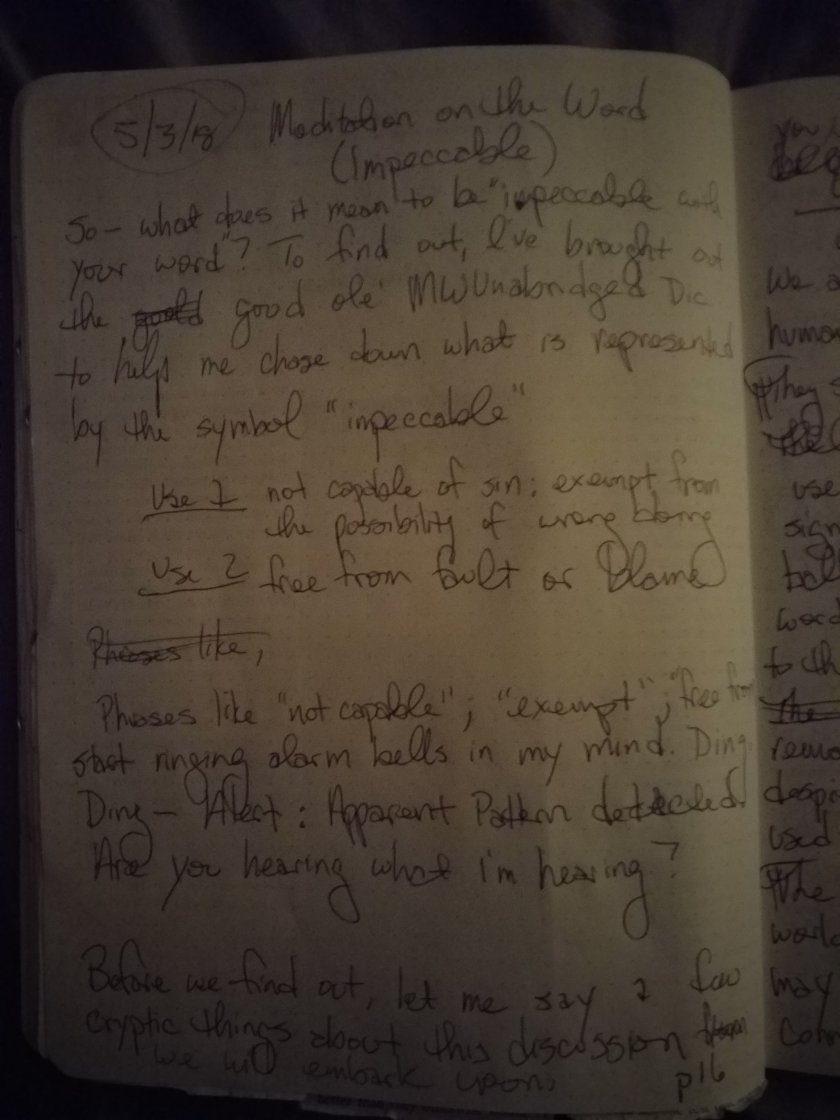 5/3/18 Meditation on the Word
(Impeccable)
So- what does it mean to be "impeccable with
your word"? To find out, I've brought out
the good ole' MWUnabridged Dic
to help me chase down what is represented
by the symbol "impeccable"
Use 1 not capable of sin: exempt from
the possibility of wrong doing
Use 2 free from fault or blame
Phrases like,
Phrases like "not capable"; "exempt"; "free from
start ringing alarm bells in my mind. Ding
Ding- Alert: Apparent Pattern detected.
Are you hearing what i'm hearing?
Before we find out, let me say a few
cryptic things about this discussion
we will embark upon.
p16
you
We a
human
They s
use
sign
bel
word
to th
the
remo
despe
used
The
world
may